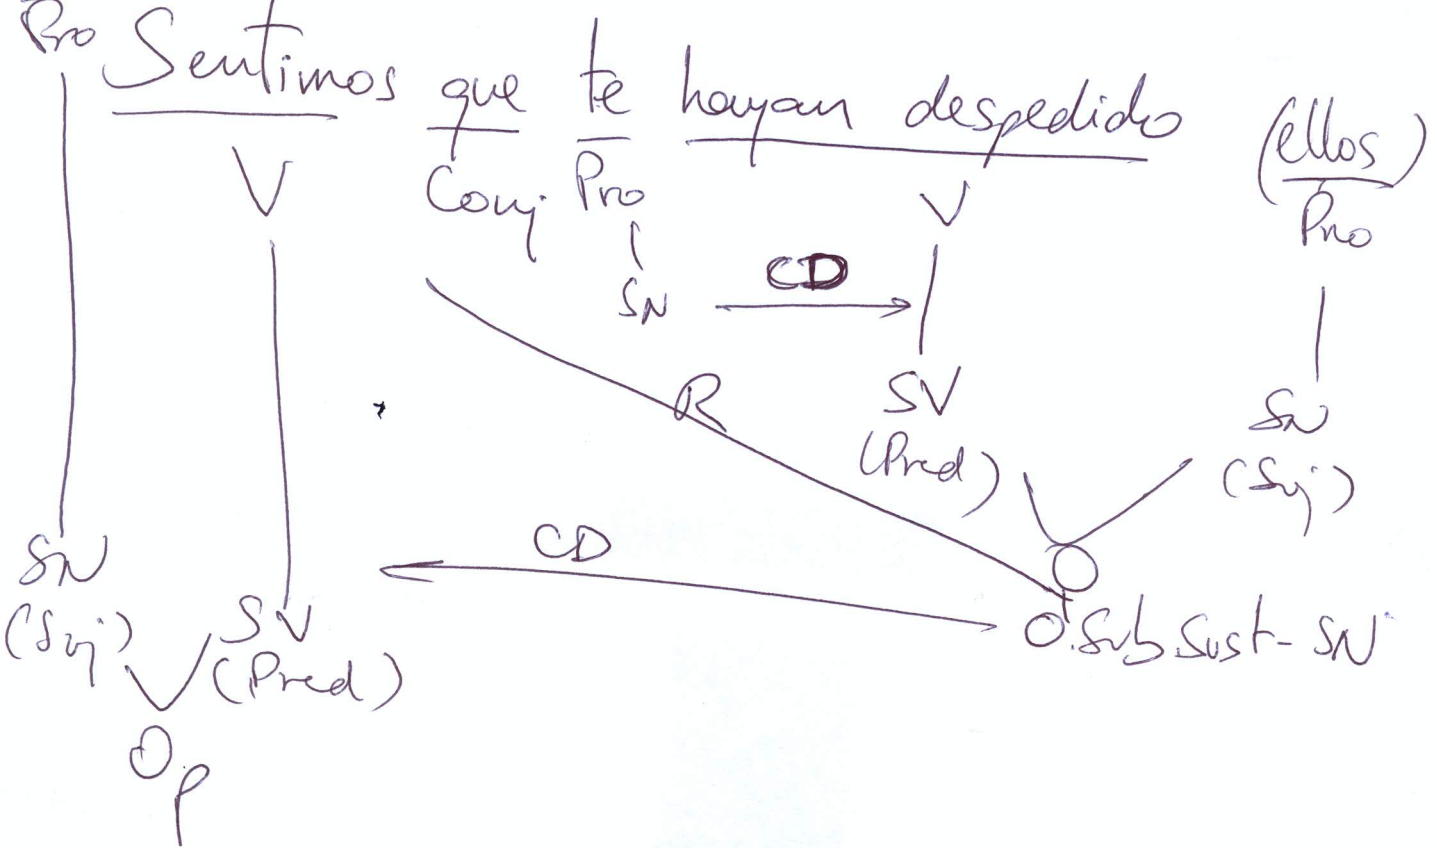 Pro Sentimos que te hayan despedido (ellos)
V Conj Pro V Pro
SN CD
R SV SN
(Pred) (Suj)
CD
SN
(Suj) SV O.Sub.Sust-SN
(Pred)
Op